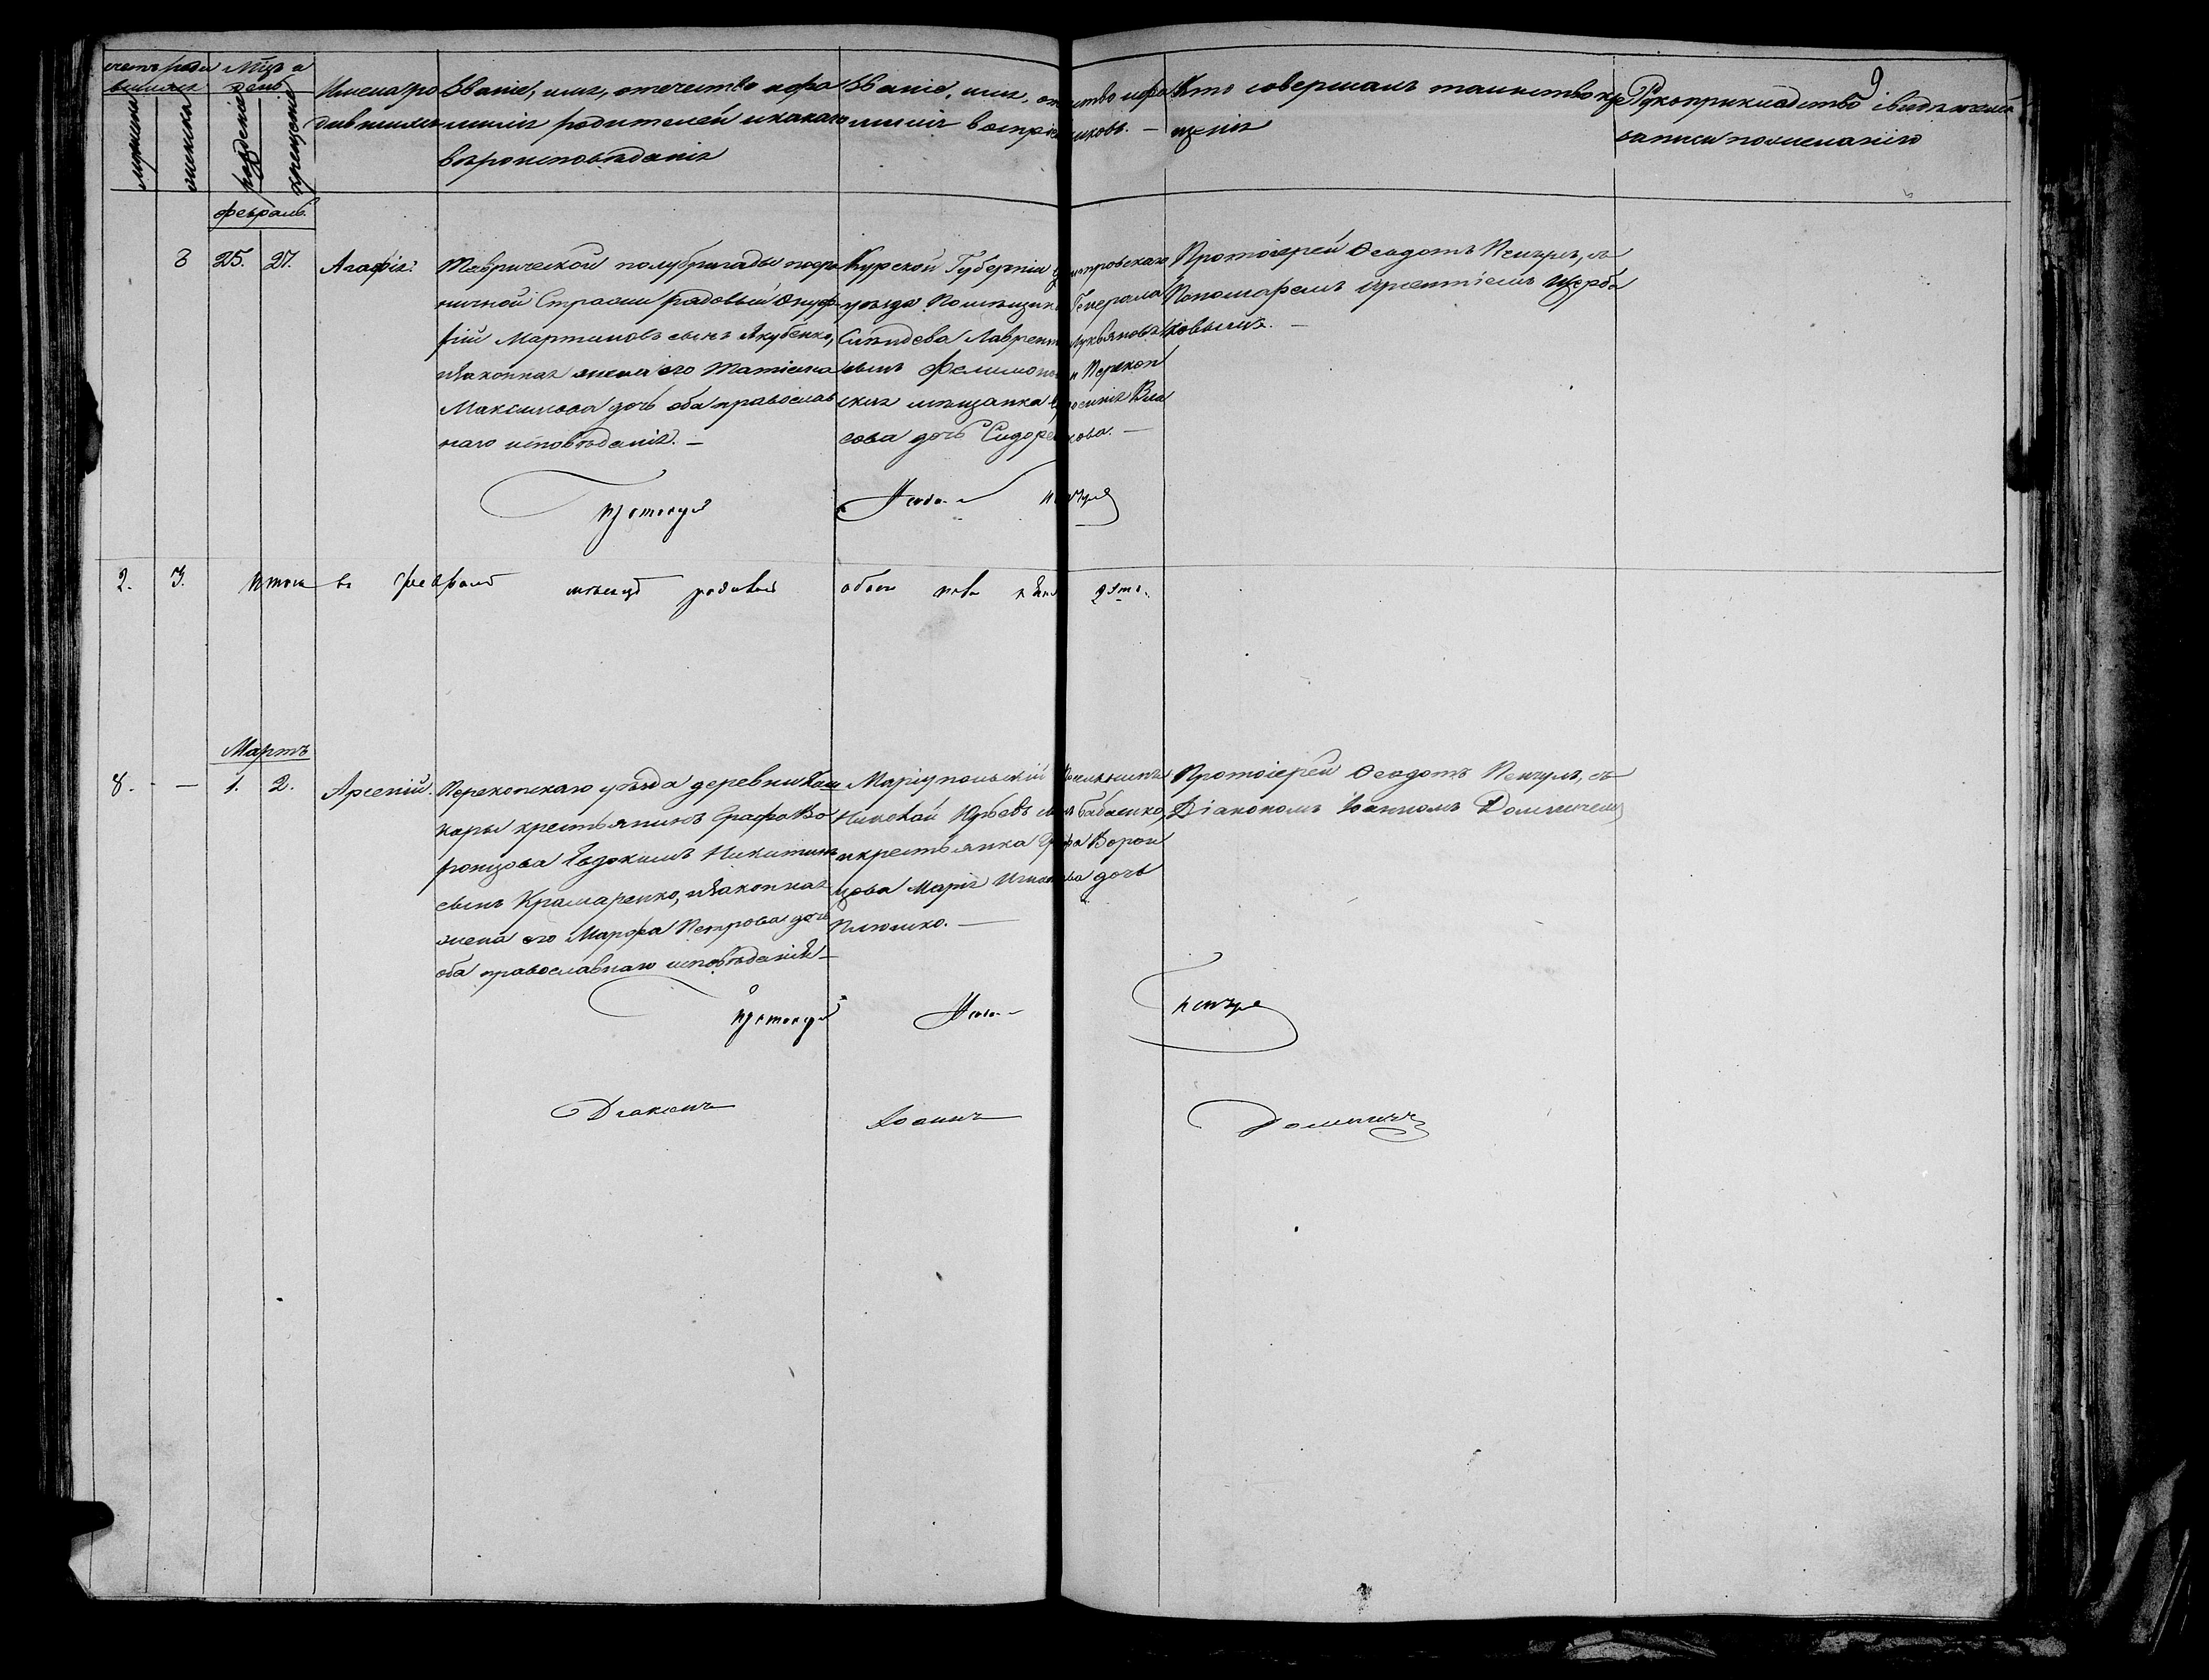 9
счетъ роди Мцъ и
вшихся день
мужеска
женска
рожденія
крещенія
Имена ро
дившихся
Званіе, имя, отечество и фа
милія родителей и какаго
вѣроисповѣданія
Званіе, имя, отчество и фа
милія воспріемниковъ. —
Кто совершалъ таинство кре
щенія
Рукоприкладство свидѣтелей
записи по желанію
Февраль.
3 25. 27. Агафія.
Таврической полубригады погра
ничной Стражи рядовый Онуф
рій Мартиновъ сынъ Якубенко,
и законная жена его Татіана
Максимова дочь оба православ
наго исповѣданія. —
Курской Губерніи
уѣзда Помѣщика Генерала
Лаврентій Лукьяновъ
сынъ и Перекоп
ская мѣщанка Вла
сова дочь Сидоренкова. —
Протоіерей Ѳеодотъ Пенчулъ, съ
Пономаремъ Щерба
ковымъ. —
Протоіерей Ѳеодотъ Пенчулъ
2. 3. Итого въ Февралѣ мѣсяцѣ родившихся обоего пола пять
Мартъ
8. — 1. 2. Арсеній.
Перекопскаго уѣзда деревни
кары крестьянинъ Графа Во
ронцова Евдокимъ Никитинъ
сынъ Крамаренко, и законная
жена его Марфа Петрова дочь
оба православнаго исповѣданія —
Маріупольскій
Николай Юрьевъ сынъ Бабашко,
и крестьянка Графа Ворон
цова Марія Игнатова дочь
Плюшко. —
Протоіерей Ѳеодотъ Пенчулъ, съ
Діакономъ Іоанномъ
Протоіерей Ѳеодотъ Пенчулъ
Діаконъ Іоаннъ